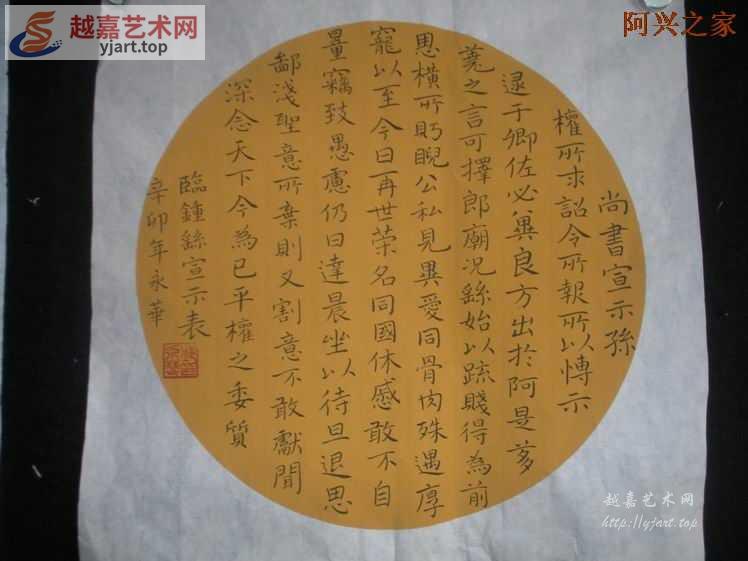 越嘉艺术网
yjart.top
阿兴之家
尚書宣示孫
權所求詔令所報所以愽示
逮于卿佐必冀良方出於阿是芻
蕘之言可擇郎廟況繇始以疏賤得為前
恩橫所眄睨公私見異愛同骨肉殊遇厚
寵以至今日再世荣名同國休慼敢不自
量竊致愚慮仍日達晨坐以待旦退思
鄙淺聖意所棄則又割意不敢獻聞
深念天下今為已平權之委質
臨鍾繇宣示表
辛卯年永華
越嘉艺术网
http://yjart.top